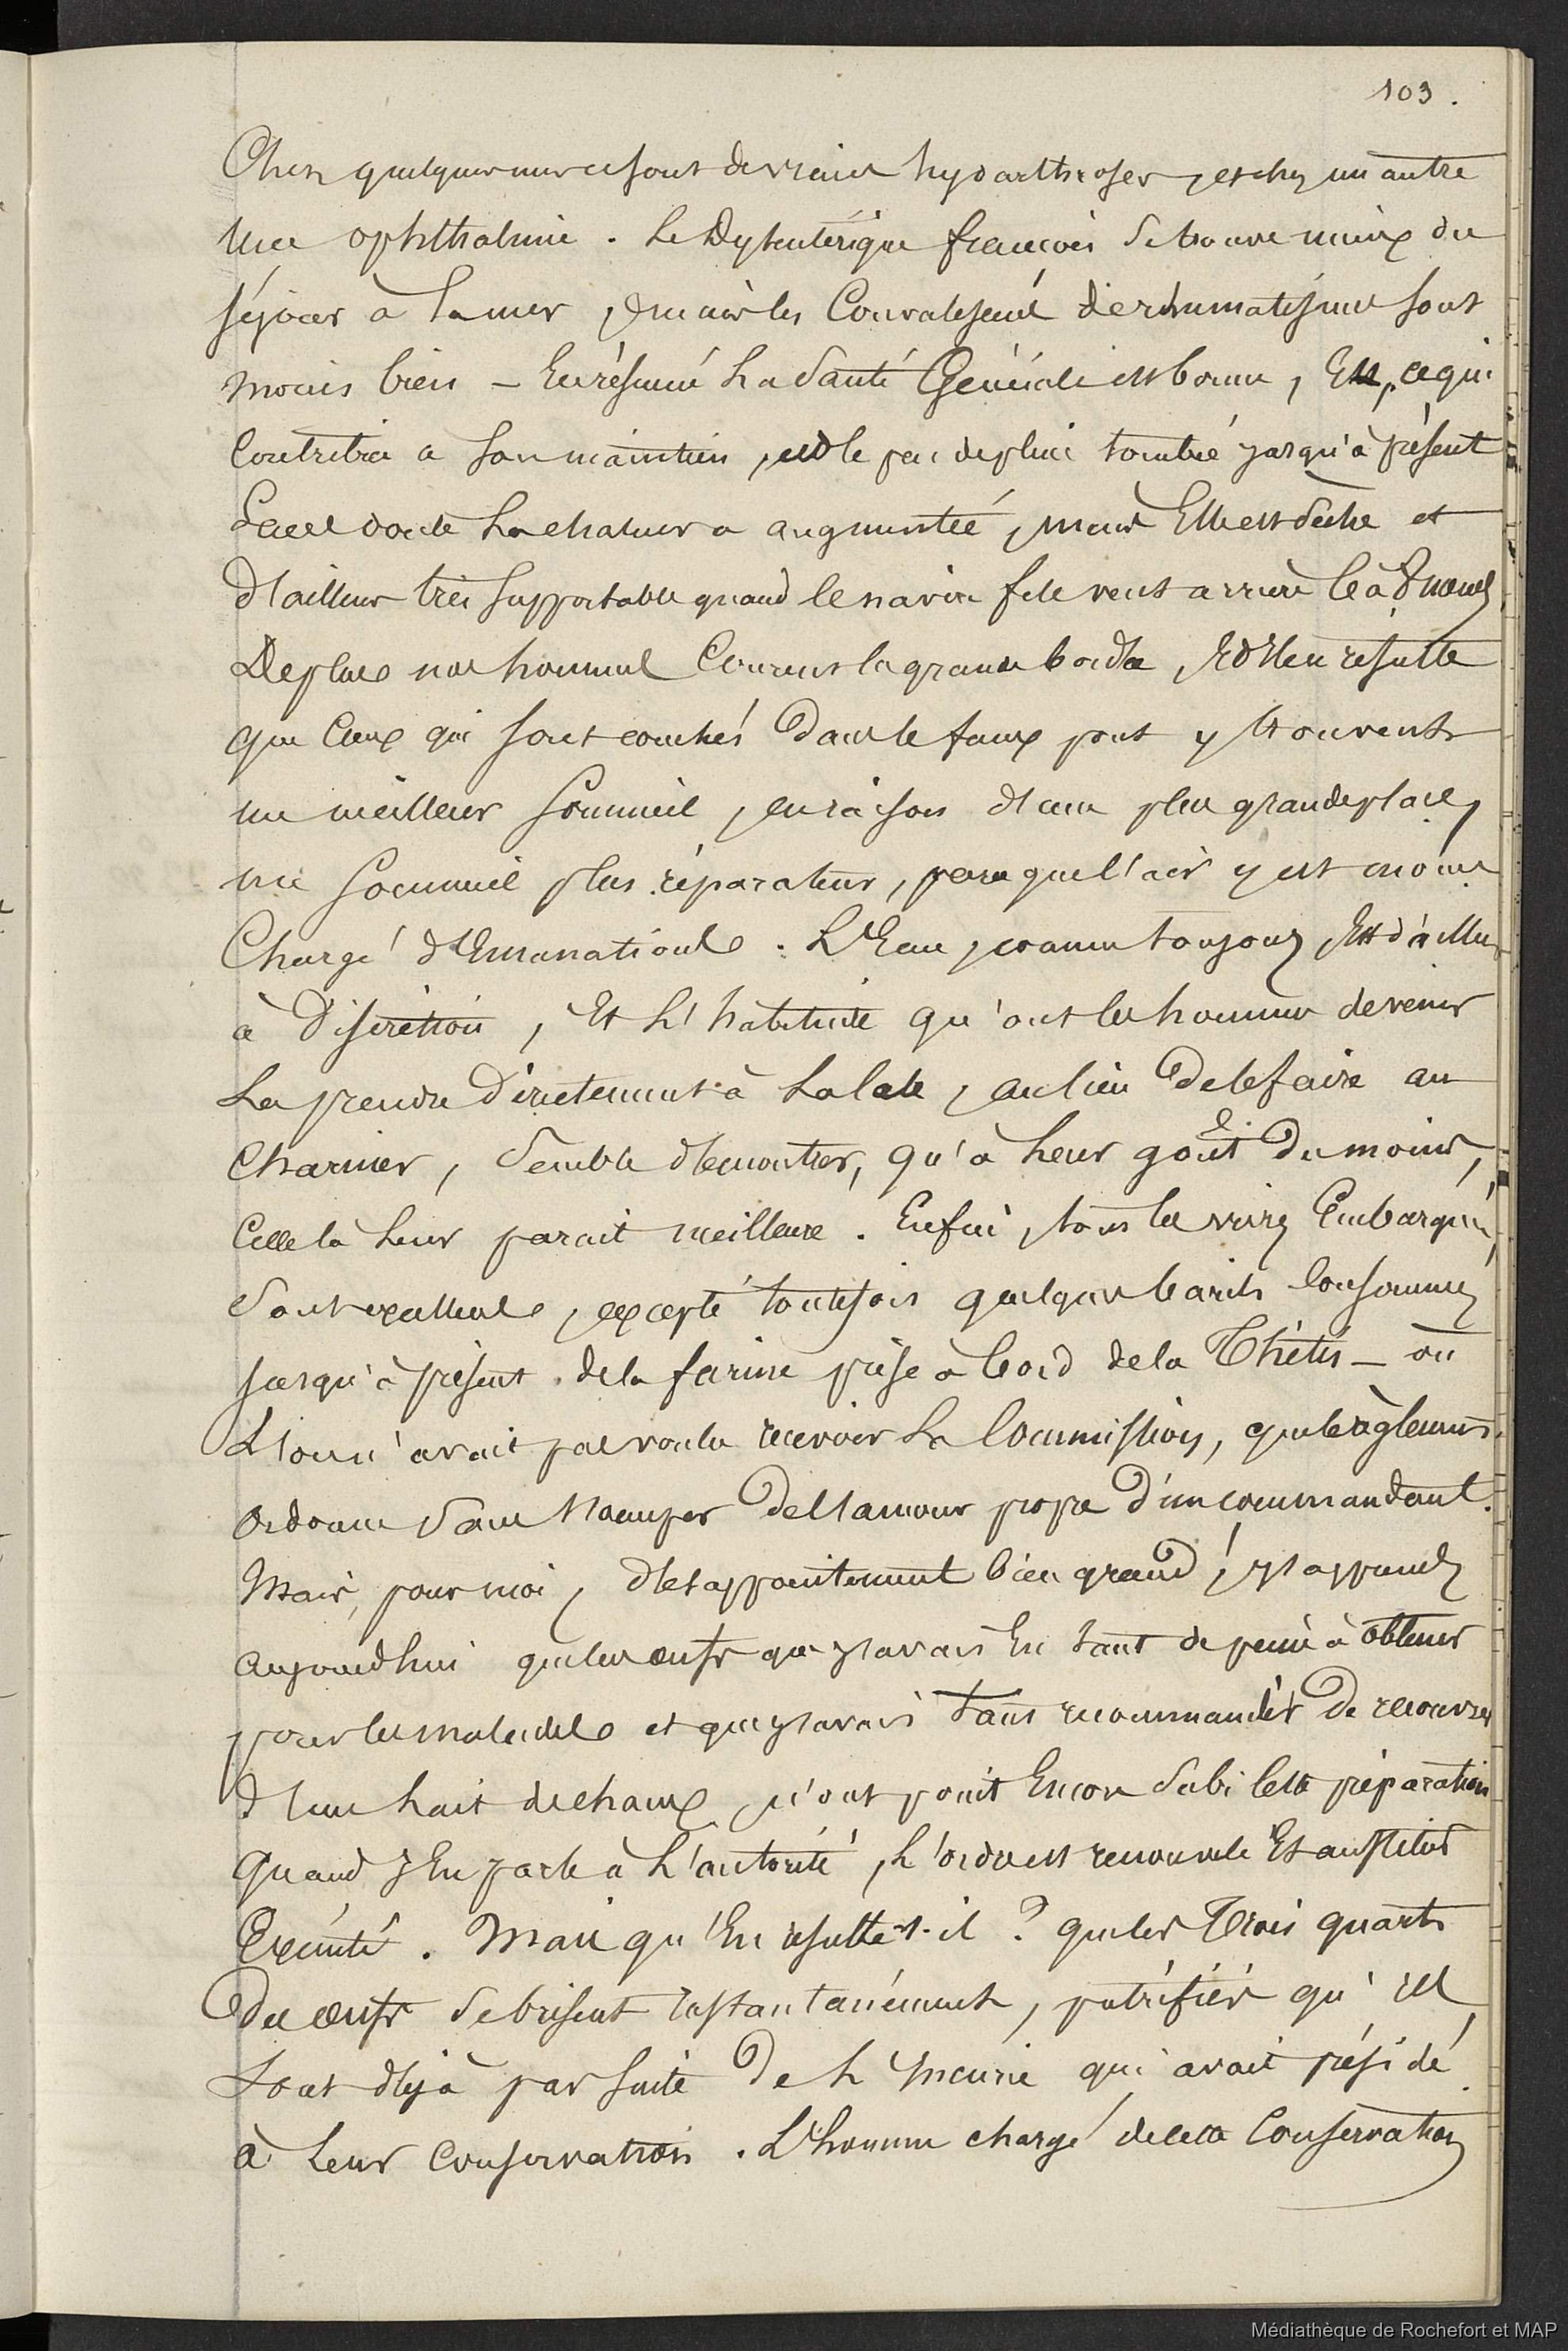 103.
Chez quelques uns ce sont de vraies hydarthroses, et chez un autre
une ophthalmie. Le Dysentérique françois se trouve mieux du
séjour à la mer, mais les Convalescens de rhumatismes sont
moins bien – En résumé La Santé Générale est bonne, Et, ce qui
Contribue a son maintien, est le peu de pluie tombé jusqu'à présent
Sans doute La chaleur a augmenté, mais Elle est sèche et
d'ailleurs très supportable quand le navire file vent arrière
De plus nos hommes Courent la grande bordée, Et Il en résulte
que Ceux qui sont couchés dans le faux pont y trouvent
un meilleur Sommeil, en raison d'une plus grande place,
un Sommeil plus réparateur, parceque l'air y est moins
Chargé d'Emanations. L'Eau, comme toujours, Est d'ailleurs
à Discrétion, Et L'habitude qu'ont les hommes de venir
La prendre Directement à La Cale, au lieu de le faire au
Charnier, Semble démontrer, qu'à Leur goût Du moins,
Celle là Leur parait meilleure. Enfin, tous les vivres Embarqués,
Sont excellents, excepté toutefois quelques barils Consommés
jusqu'à présent de la farine prise à bord de la Thétis – où
L'on n'avait pas voulu recevoir La Commission, que les règlemens
ordonne Sans s'occuper de l'amour propre d'un commandant.
Mais, pour moi, désappointement bien grand! j'apprends
aujourd'hui que les œufs que j'avais Eu tant de peine à obtenir
pour les malades et que j'avais tant recommandés de recouvrir
d'un Lait de chaux, n'ont point Encore Subi cette préparation
Quand j'En parle à L'autorité, L'ordre est renouvelé Et aussitôt
Exécuté. Mais qu'En résulte-t-il? que les Trois quarts
Des œufs se brisent Instantanément, putréfiés qu'ils
Sont déjà par suite De L'Incurie qui avait présidé
à Leur Conservation. L'homme chargé de cette Conservation
Médiathèque de Rochefort et MAP